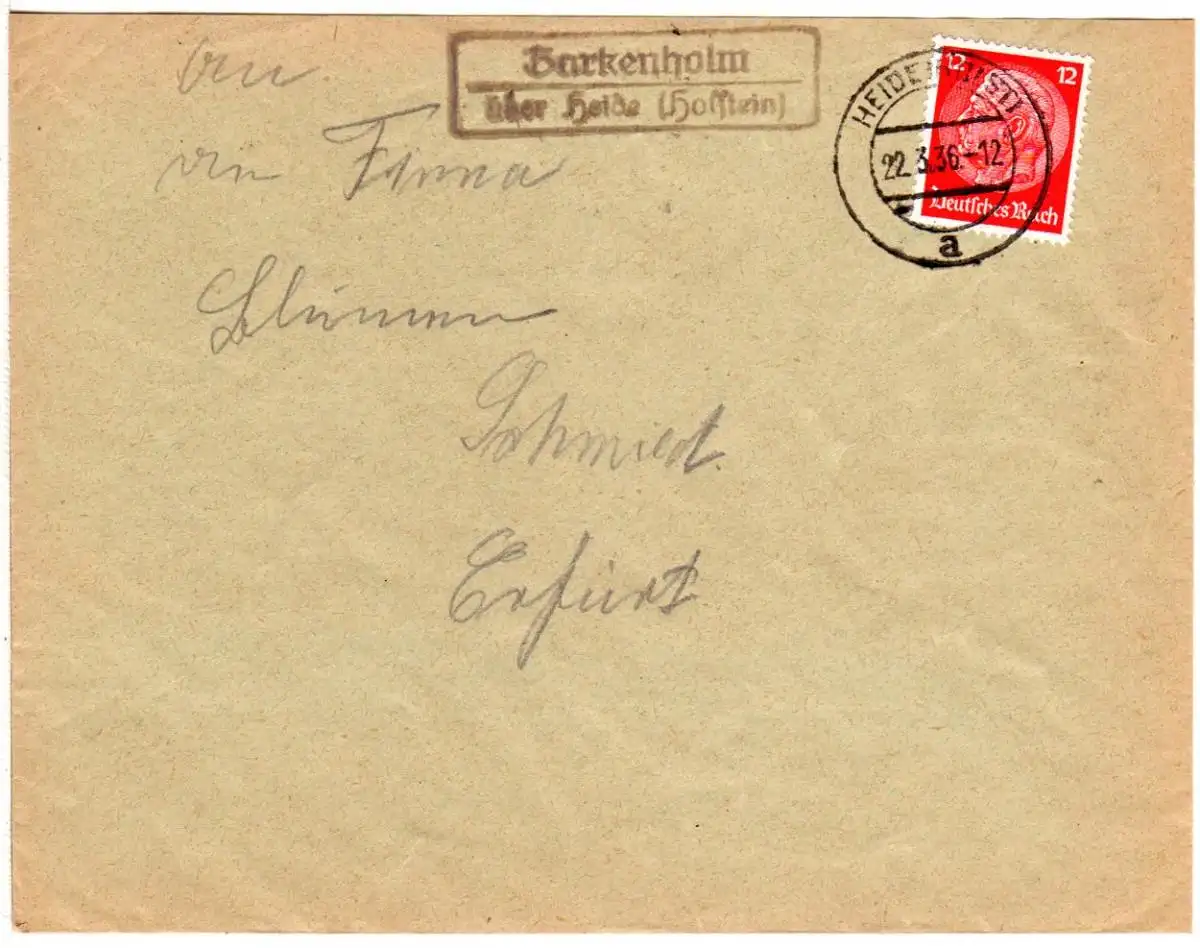 Barkenholm
über Heide (Holstein)
12 12
HEIDE (HOLST)
22.3.36.-12
a
Deutsches Reich
An
die Firma
Blumen
Schmidt.
Erfurt